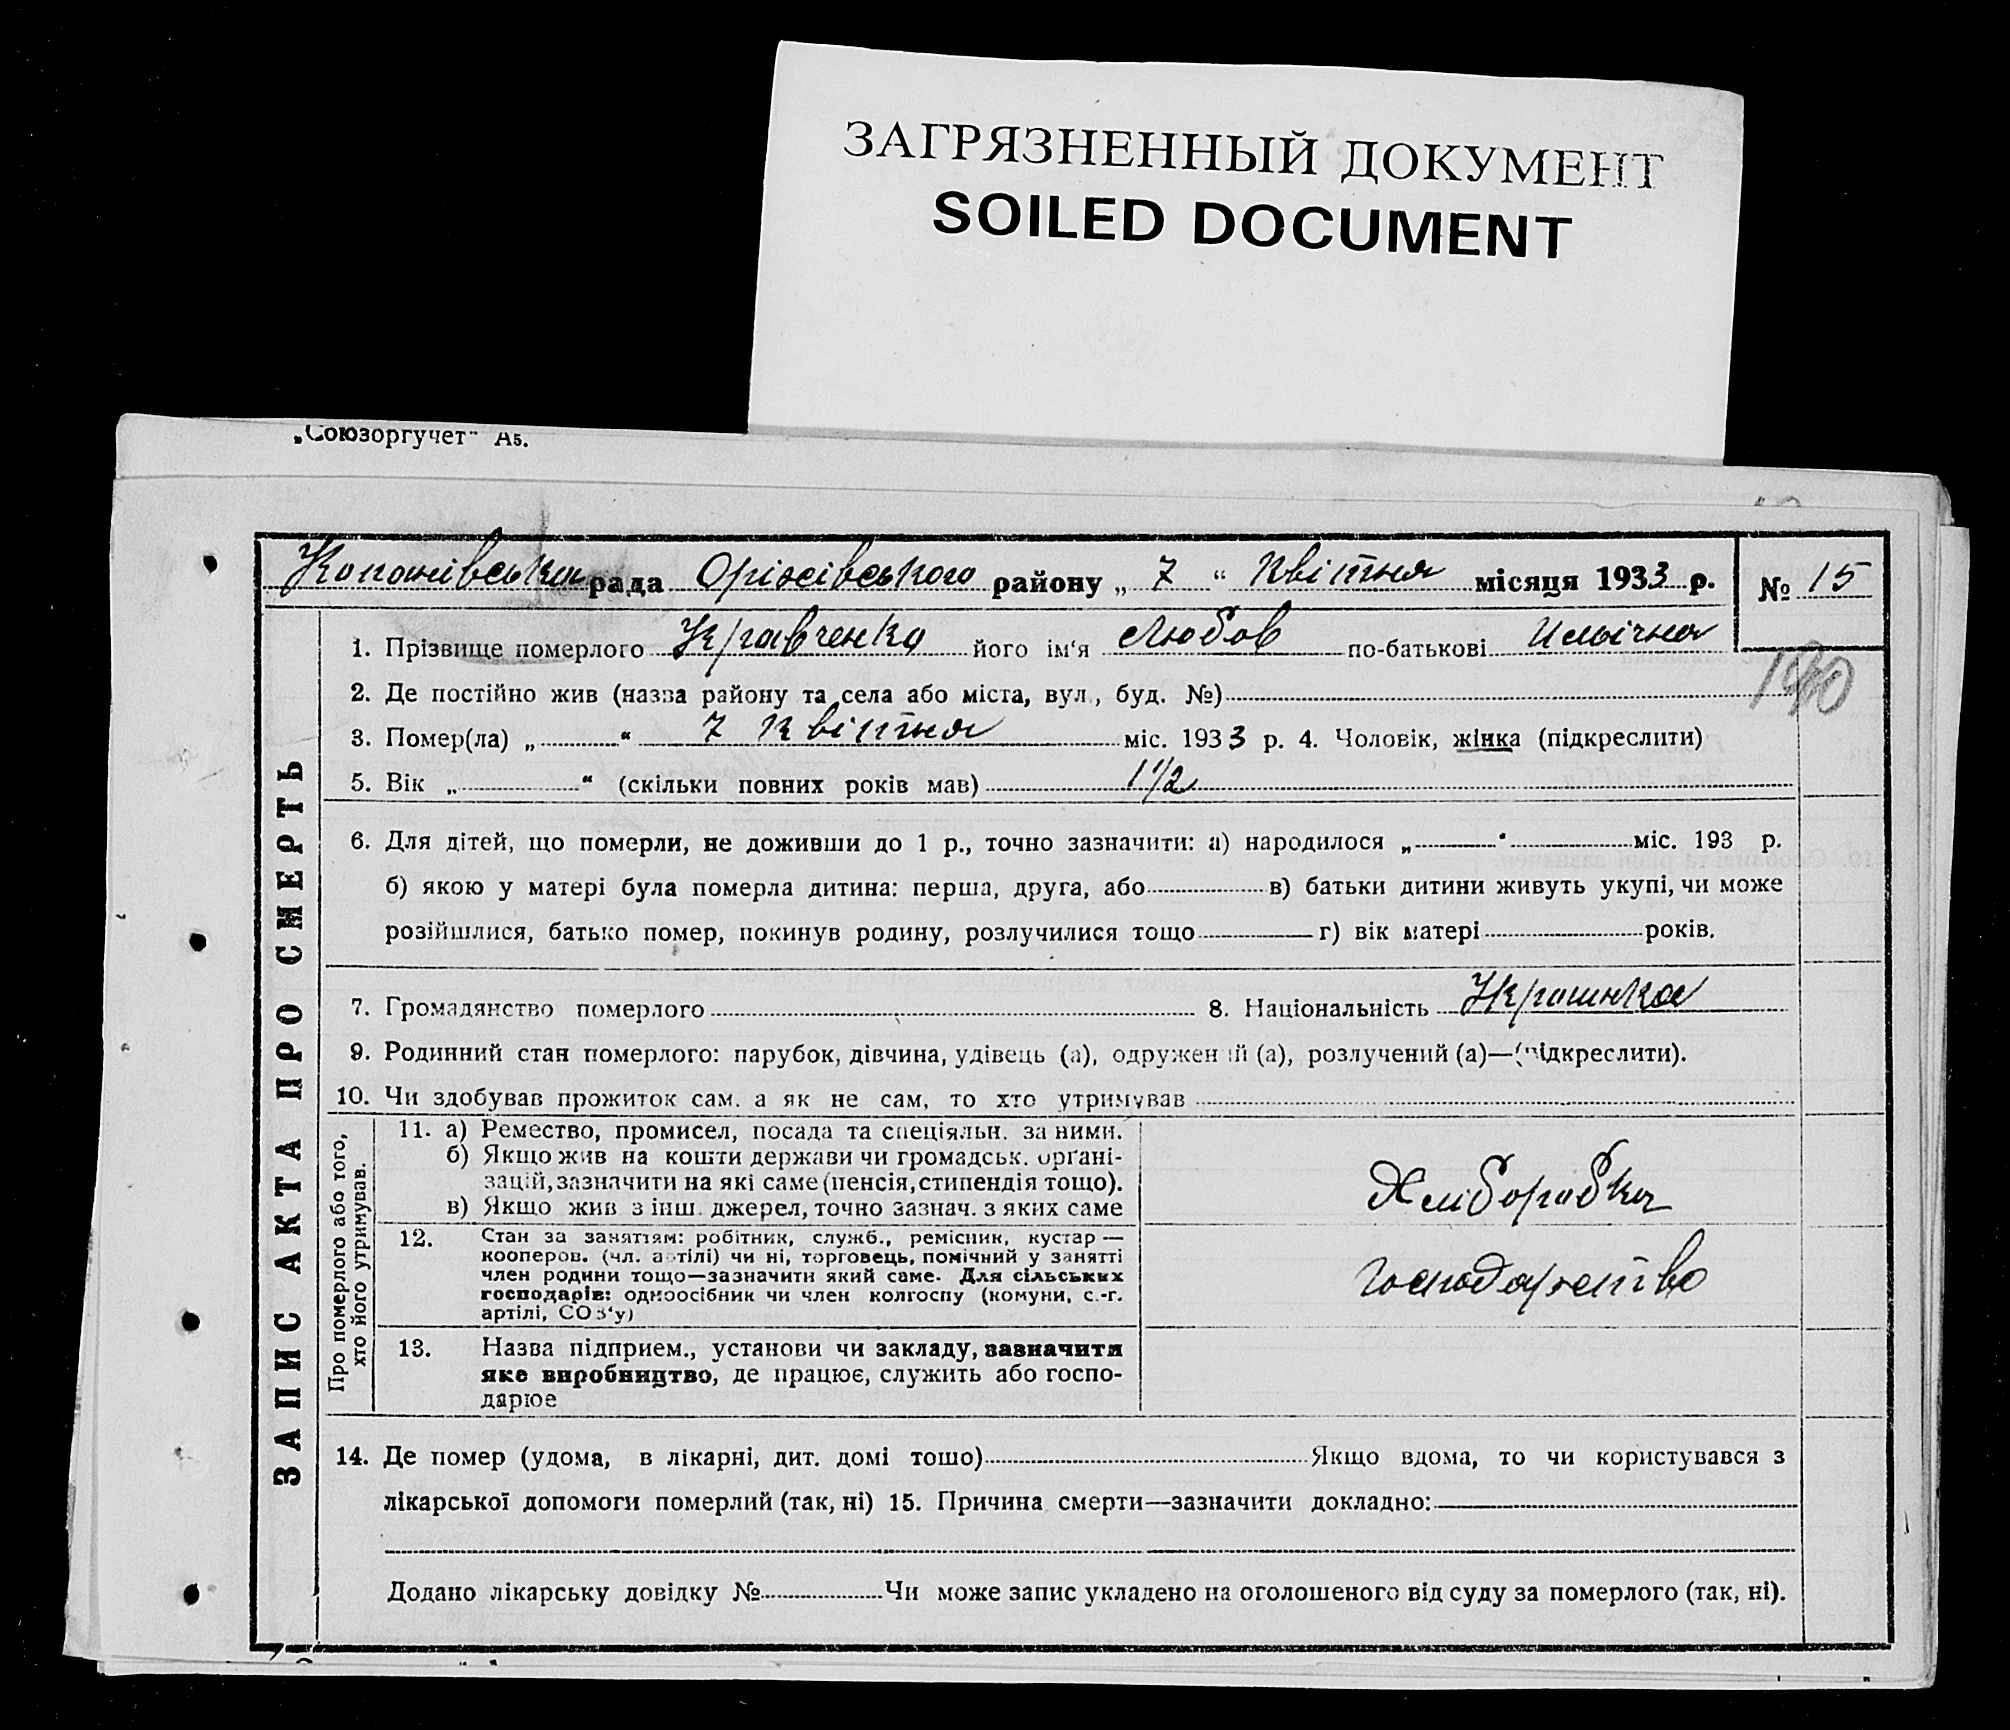 ЗАГРЯЗНЕННЫЙ ДОКУМЕНТ
SOILED DOCUMENT
„Союзоргучет" А5.
Копанівська рада Оріхівського району „ 7 " Квітня місяця 1933 р. № 15
190
1. Прізвище померлого Кравченко його ім'я Любов по-батькові Ильічна
2. Де постійно жив (назва району та села або міста, вул., буд. №)
3. Помер(ла) „ " 7 Квітня міс. 1933 р. 4. Чоловік, жінка (підкреслити)
5. Вік „ " (скільки повних років мав) 1 1/2
6. Для дітей, що померли, не доживши до 1 р., точно зазначити: а) народилося „ " міс. 193 р.
б) якою у матері була померла дитина: перша, друга, або в) батьки дитини живуть укупі, чи може
розійшлися, батько помер, покинув родину, розлучилися тощо г) вік матері років.
7. Громадянство померлого 8. Національність Украинка
9. Родинний стан померлого: парубок, дівчина, удівець (а), одружений (а), розлучений (а)—(підкреслити).
10. Чи здобував прожиток сам. а як не сам, то хто утримував
ЗАПИС АКТА ПРО СМЕРТЬ
Про померлого або того,
хто його утримував.
11. а) Ремество, промисел, посада та спеціяльн. за ними.
б) Якщо жив на кошти держави чи громадськ. органі-
зацій, зазначити на які саме (пенсія, стипендія тощо).
в) Якщо жив з інш. джерел, точно зазнач. з яких саме
Хлиборобка
12. Стан за заняттям: робітник, служб., ремісник, кустар—
кооперов. (чл. артілі) чи ні, торговець, помічний у занятті
член родини тощо—зазначити який саме. Для сільських
господарів: одноосібник чи член колгоспу (комуни, с.-г.
артілі, СОЗ'у)
господарство
13. Назва підприєм., установи чи закладу, зазначити
яке виробництво, де працює, служить або госпо-
дарює
14. Де помер (удома, в лікарні, дит. домі тощо) Якщо вдома, то чи користувався з
лікарської допомоги померлий (так, ні) 15. Причина смерти—зазначити докладно:
Додано лікарську довідку № Чи може запис укладено на оголошеного від суду за померлого (так, ні).